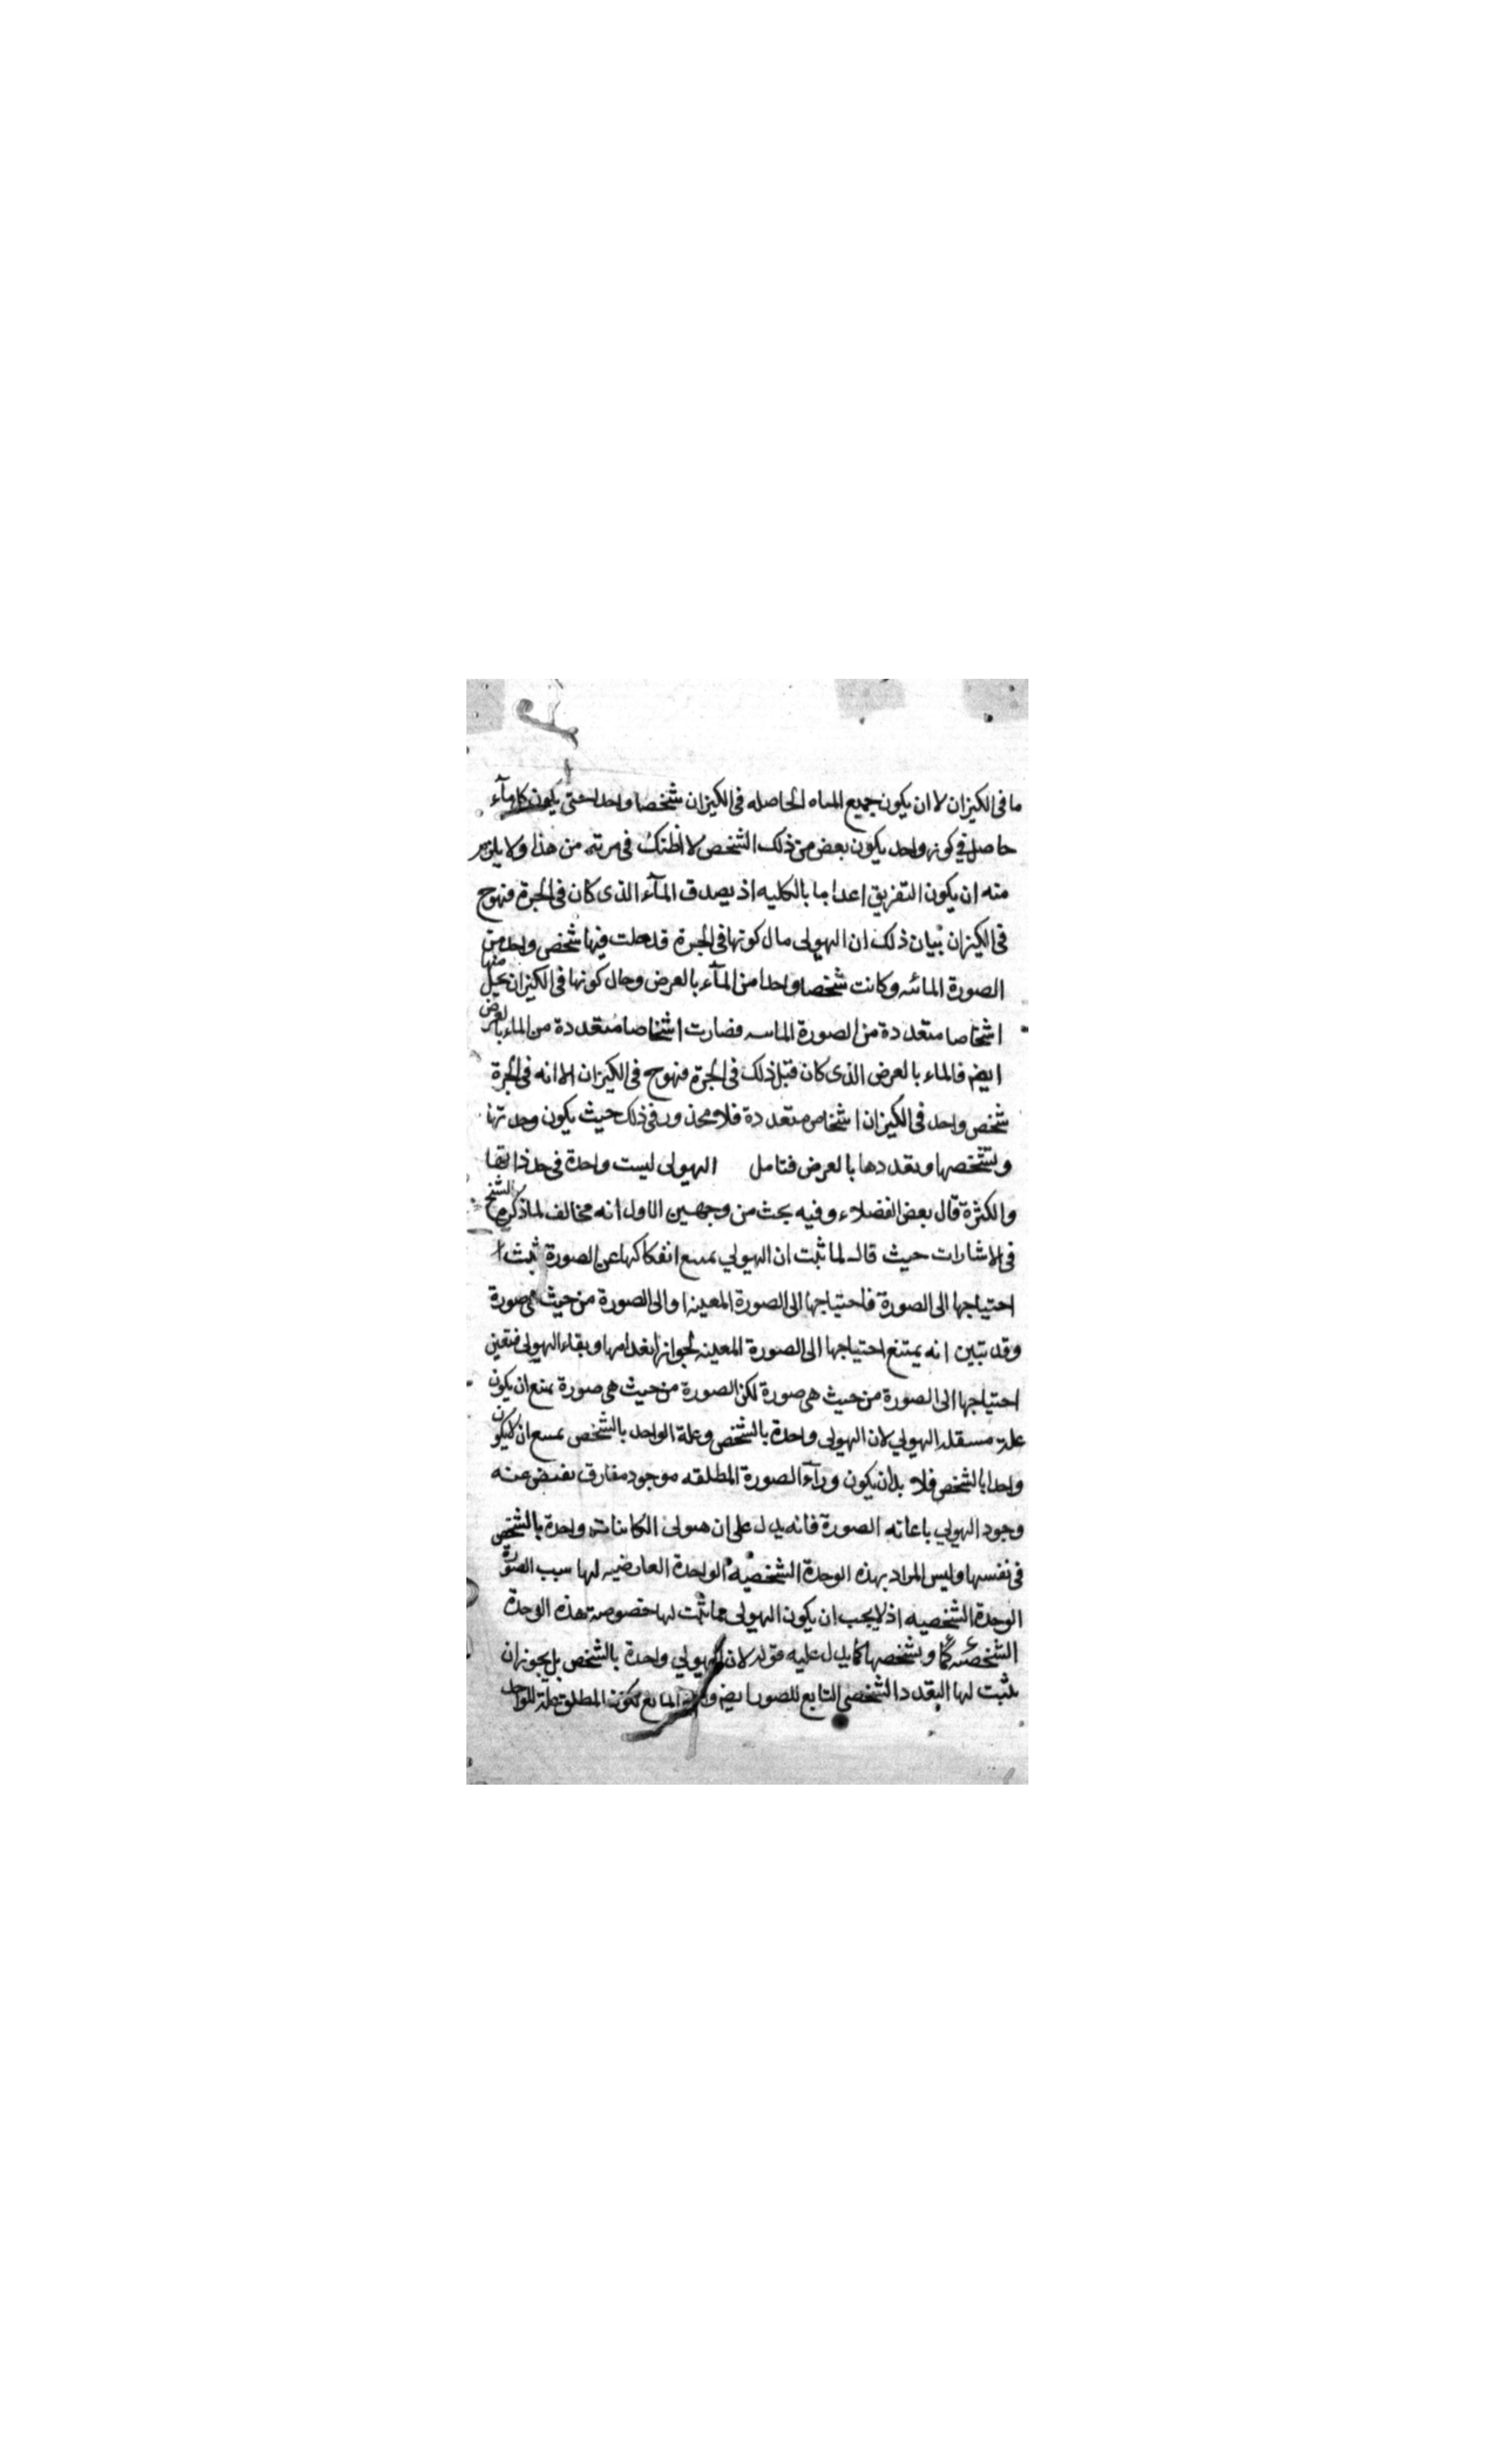 ما فى الكيزان لا ان يكون جميع المياه الحاصله فى الكيزان شخصا واحدا حتى يكون كل ماء
حاصل فى كوز واحد يكون بعض من ذلك الشخص لا اظنك فى مرية من هذا ولا يلزم
منه ان يكون التفريق اعداما بالكليه اذ يصدق المآء الذى كان فى الجرة فهوح
فى الكيزان بيان ذلك ان الهيولى حال كونها فى الجرة قد حلت فيها شخص واحد من
الصورة المائيه وكانت شخصا واحدا من المآء بالعرض وحال كونها فى الكيزان يحل فيها
اشخاصا متعددة من الصورة المائيه فصارت اشخاصا متعددة من الماء بالعرض
ايضا فالماء بالعرض الذى كان قبل ذلك فى الجرة فهوح فى الكيزان الا انه فى الجرة
شخص واحد فى الكيزان اشخاص متعددة فلا محذور فى ذلك حيث يكون وحدتها
وتشخصها وتعددها بالعرض فتامل الهيولى ليست واحدة فى حد ذاتها
والكثرة قال بعض الفضلاء وفيه بحث من وجهين الاول انه مخالف لما ذكره الشيخ
فى الاشارات حيث قال لما ثبت ان الهيولي يمتنع انفكاكها عن الصورة ثبت
احتياجها الى الصورة فاحتياجها الى الصورة المعينه او الى الصورة من حيث هى صورة
وقد تبين انه يمتنع احتياجها الى الصورة المعينه لجواز انعدامها وبقاء الهيولى فتعين
احتياجها الى الصورة من حيث هى صورة لكن الصورة من حيث هى صورة يمتنع ان يكون
علة مستقله الهيولي لان الهيولى واحدة بالشخص وعلة الواحد بالشخص يمتنع ان لا يكون
واحدا بالشخص فلا بد ان يكون ورآء الصورة المطلقه موجود مفارق يفيض عنه
وجود الهيولي باعانه الصورة فانه يدل على ان هيولى الكاينات واحدة بالشخص
فى نفسها وليس المراد بهذه الوحدة الشخصيه الواحدة العارضيه لها سبب الصورة
الوحدة الشخصيه اذ لا يجب ان يكون الهيولى مما ثبت لها خصوصة هذه الوحدة
الشخصيه وتشخصها كما يدل عليه قوله لان الهيولي واحدة بالشخص بل يجوز ان
يثبت لها التعدد الشخصى التابع للصور ايضا المانع لكون المطلق علة للواحد